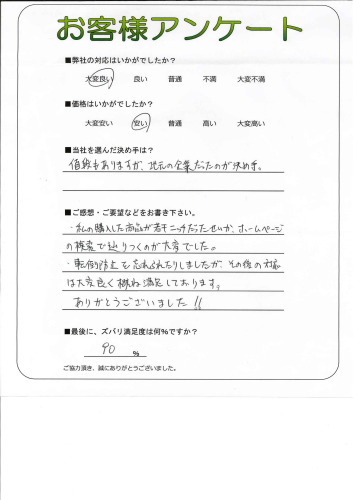 お客様アンケート
■弊社の対応はいかがでしたか?
大変良い 良い 普通 不満 大変不満
■価格はいかがでしたか?
大変安い 安い 普通 高い 大変高い
■当社を選んだ決め手は?
値段もありますが、地元の企業だったのが決め手。
■ご感想・ご要望などをお書き下さい。
・私の購入した商品が若干ニッチだったせいか、ホームページ
の検索で辿りつくのが大変でした。
・転倒防止を忘れられたりしましたが、その後の対応
は大変良く概ね満足しております。
ありがとうございました!!
■最後に、ズバリ満足度は何%ですか?
90 %
ご協力頂き、誠にありがとうございました。